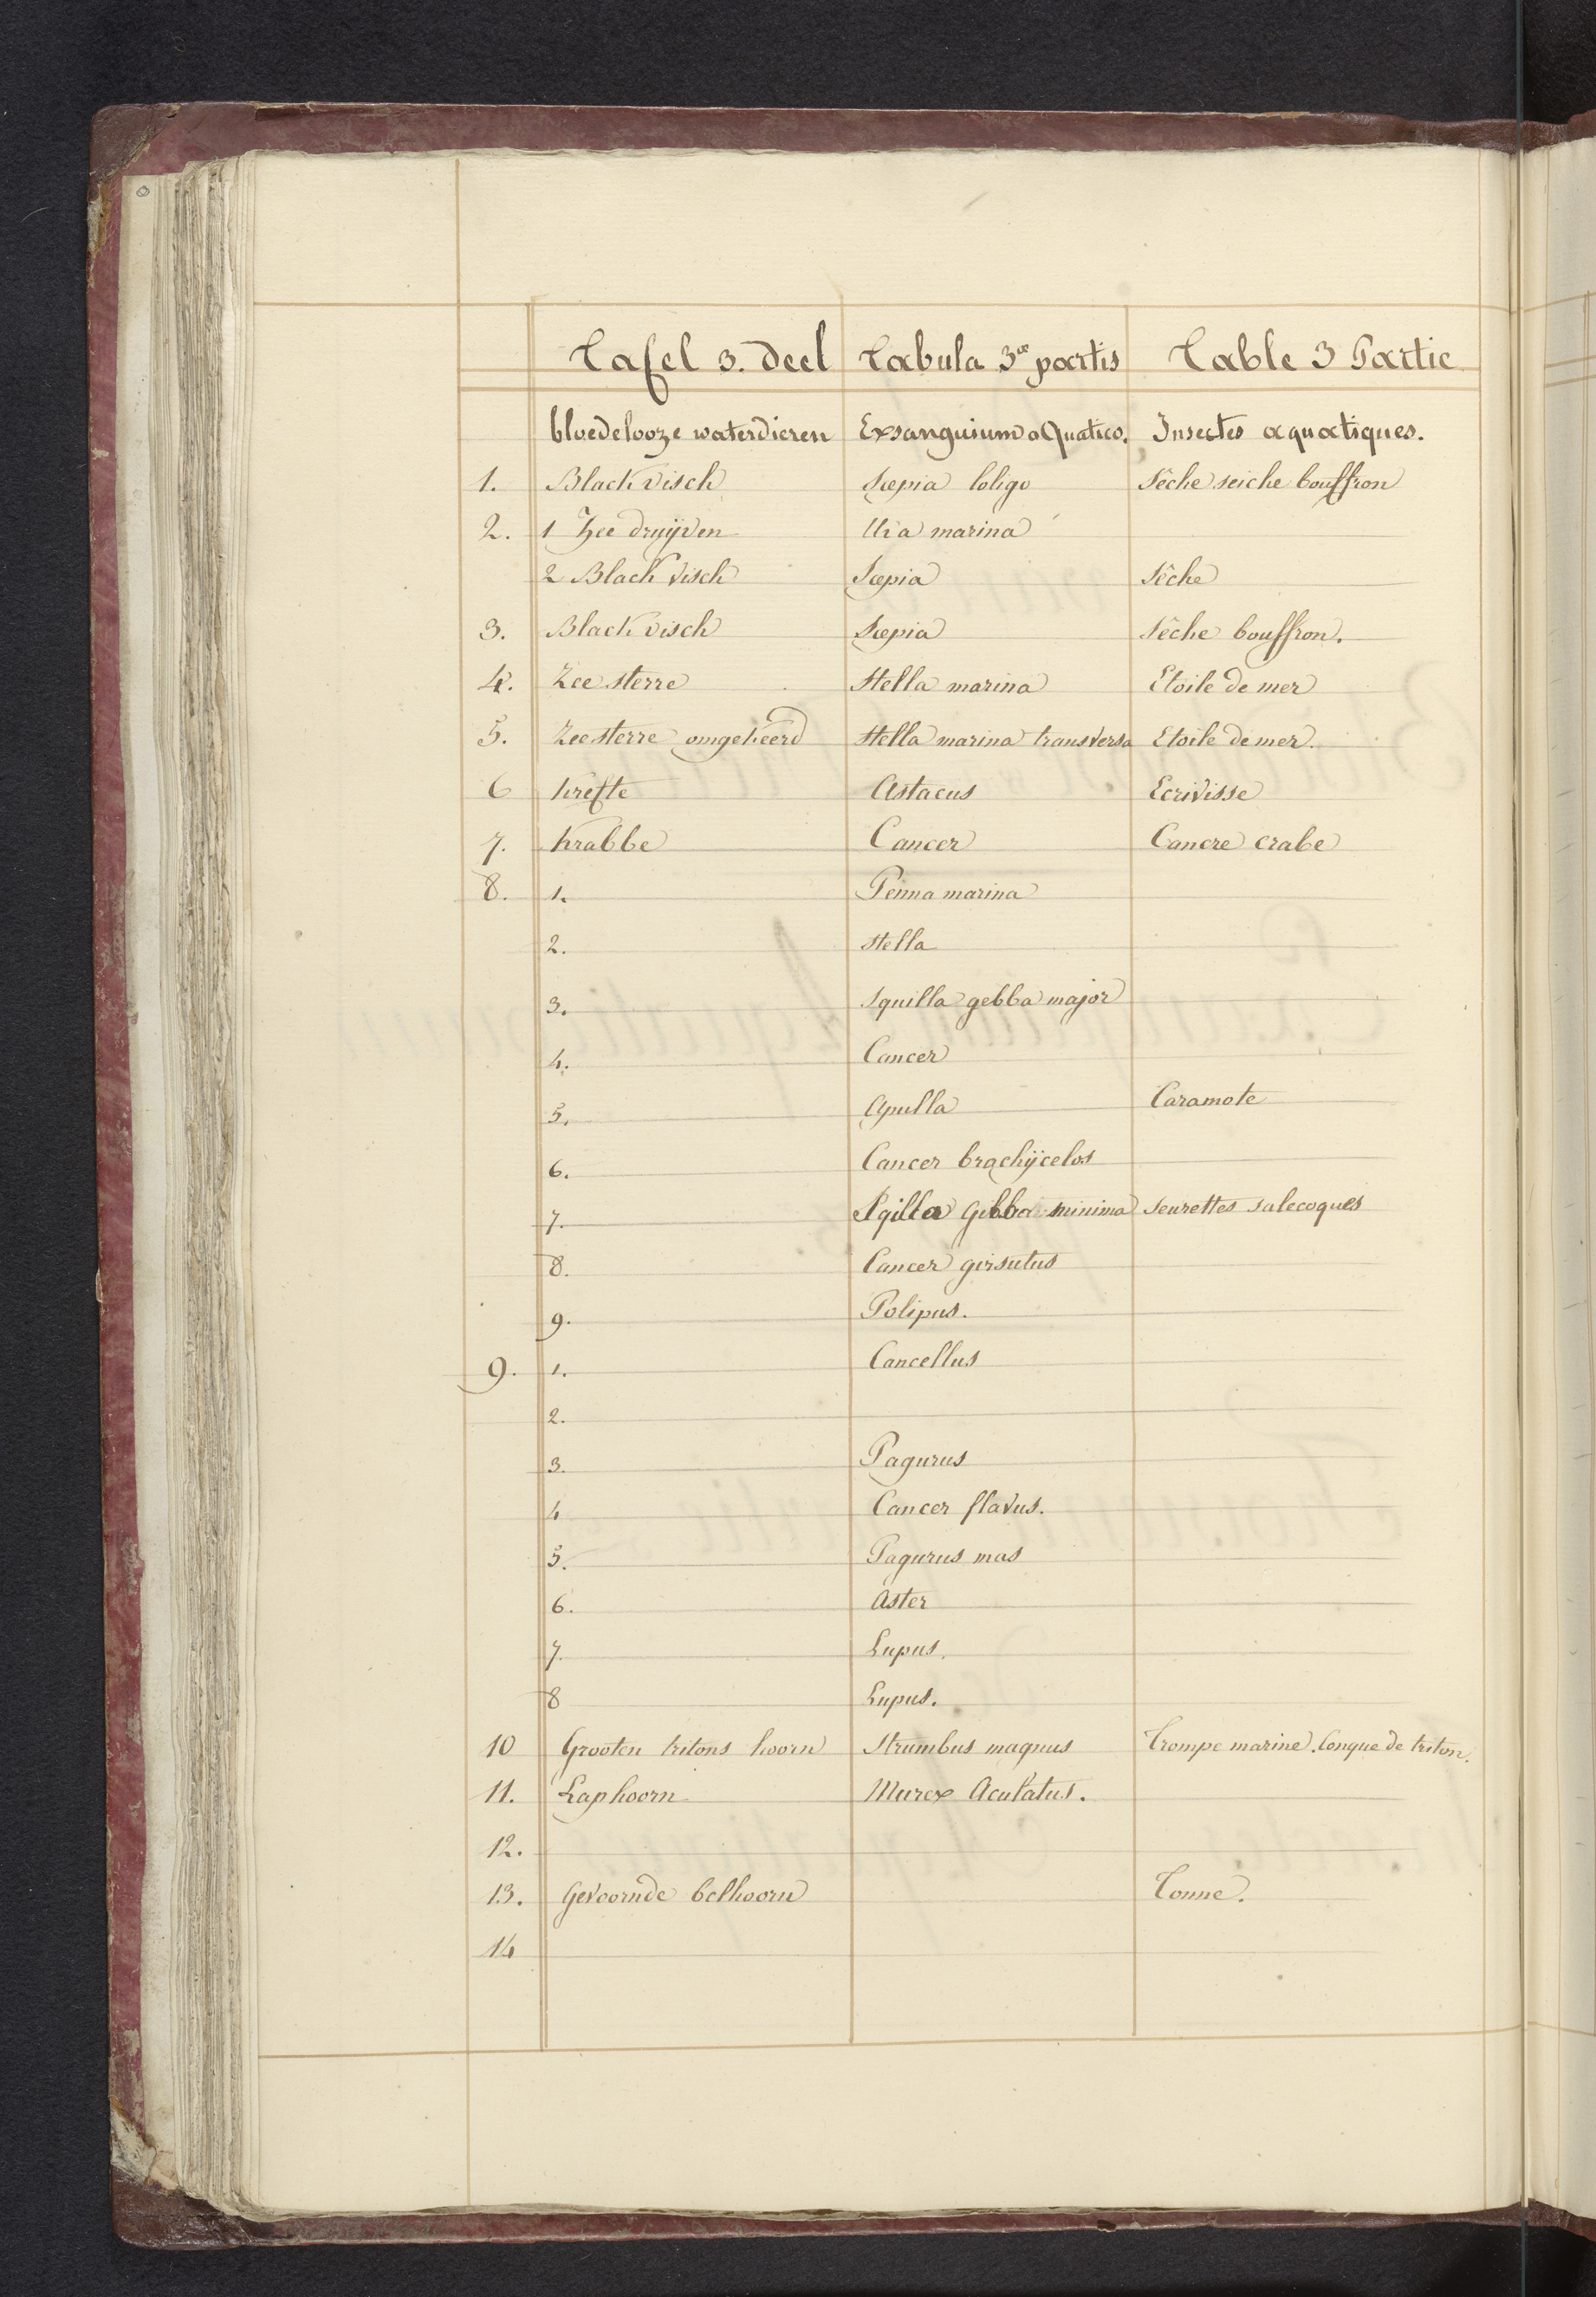 Tafel 3. deel Tabula 3æ partis Table 3 Partie
bloedelooze waterdieren Exsanguium aQuatico. Insectes aquatiques.
1. Black visch Sæpia loligo Sêche seiche bouffron
2. 1 Zee druÿven Uva marina
2 Black Visch Sæpia Sêche
3. Black visch Sæpia Sêche bouffron.
4. Zee sterre Stella marina Etoile de mer
5. Zee sterre omgekeerd Stella marina transversa Etoile de mer.
6 Krefte Astacus Ecrivisse
7. Krabbe Cancer Cancre crabe
8. 1. Penna marina
2. Stella
3. Squilla gebba major
4. Cancer
5. Caramote
6. Cancer brachÿcelos
7. Sqilla Gibba minima seurettes salecoques
8. Cancer girsutus
9. Polipus.
9. 1. Cancellus
2.
3. Pagurus
4 Cancer flavus.
5. Pagurus mas
6. Aster
7. Lupus.
8 Lupus.
10 Grooten tritons hoorn Strumbus magnus Trompe marine. Conque de triton.
11. Kaphoorn Murex Aculatus.
12.
13. Gevoornde belhoorn Tonne.
14